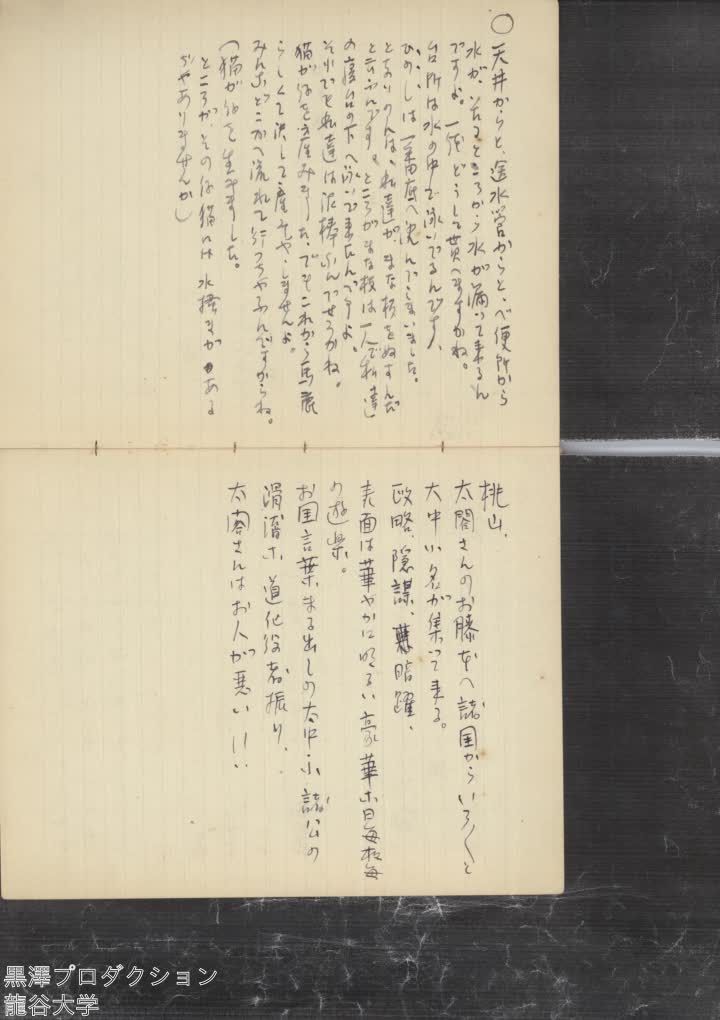 ○
天井からと、送水管からと、べ便所から
水が、至るところから水が漏って来るん
ですよ。一体どうして貰へますかね。
台所は水の中で泳いでるんです、
ひのしは一番底へ沈んでしまいました。
となりの人は、私達が、まな板をぬすんだ
と云ふんです、ところがまな板は一人で私達
の寝台の下へ泳いで来たんですよ。
それでも私達は泥棒なんでせうかね。
猫が仔を産みました、でもこれから馬鹿
らしくて決して産みやしませんよ。
みんなどこかへ流れて行っちゃふんですからね。
(猫が仔を生みました。
ところが、その仔猫には水掻きがある
ぢゃありませんか)
桃山、
太閤さんのお膝本へ諸国からいろ〱と
大中小名が集って来る。
政略、隠謀、暗躍、
表面は華やかに明るい豪華な日毎夜毎
の遊楽。
お国言葉まる出しの大中小諸公の
滑稽な道化役者振り、
太閤さんはお人が悪い!!
黒澤プロダクション
龍谷大学